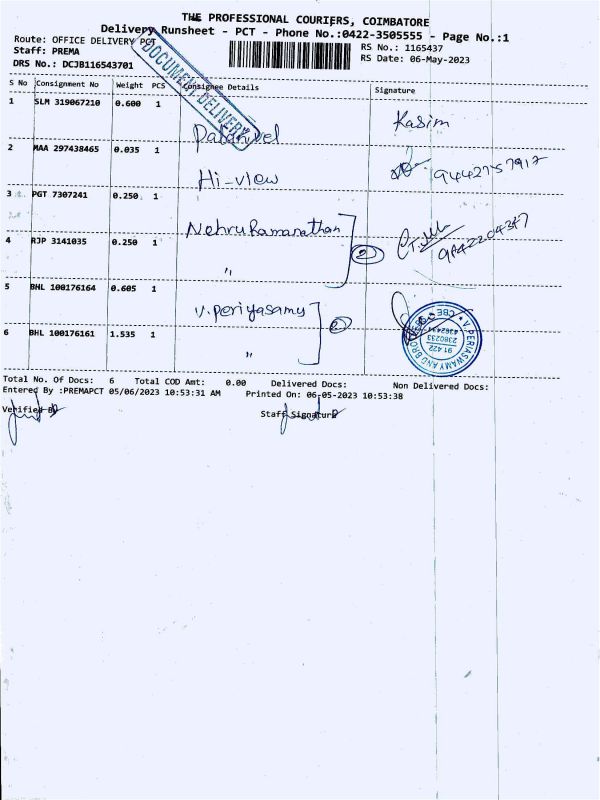 THE PROFESSIONAL COURIERS, COIMBATORE
Delivery Runsheet - PCT - Phone No.:0422-3505555 - Page No.:1
Route: OFFICE DELIVERY PCT
RS No.: 1165437
Staff: PREMA
RS Date: 06-May-2023
DRS No.: DCJB116543701
DOCUMENT DELIVERY
S No Consignment No Weight PCS Consignee Details Signature
1 SLM 319067210 0.600 1 Palanivel Kasim
2 MAA 297438465 0.035 1 Hi-view 9442757917
3 PGT 7307241 0.250 1 Nehru Ramanathan
4 RJP 3141035 0.250 1 " 2 9842204347
5 BHL 100176164 0.605 1 V. Periyasamy 2
6 BHL 100176161 1.535 1 "
V. PERIASWAMY AND BROTHERS CBE
91 422
2380233
Total No. Of Docs: 6 Total COD Amt: 0.00 Delivered Docs: Non Delivered Docs:
Entered By :PREMAPCT 05/06/2023 10:53:31 AM Printed On: 06-05-2023 10:53:38
Verified By Staff Signature